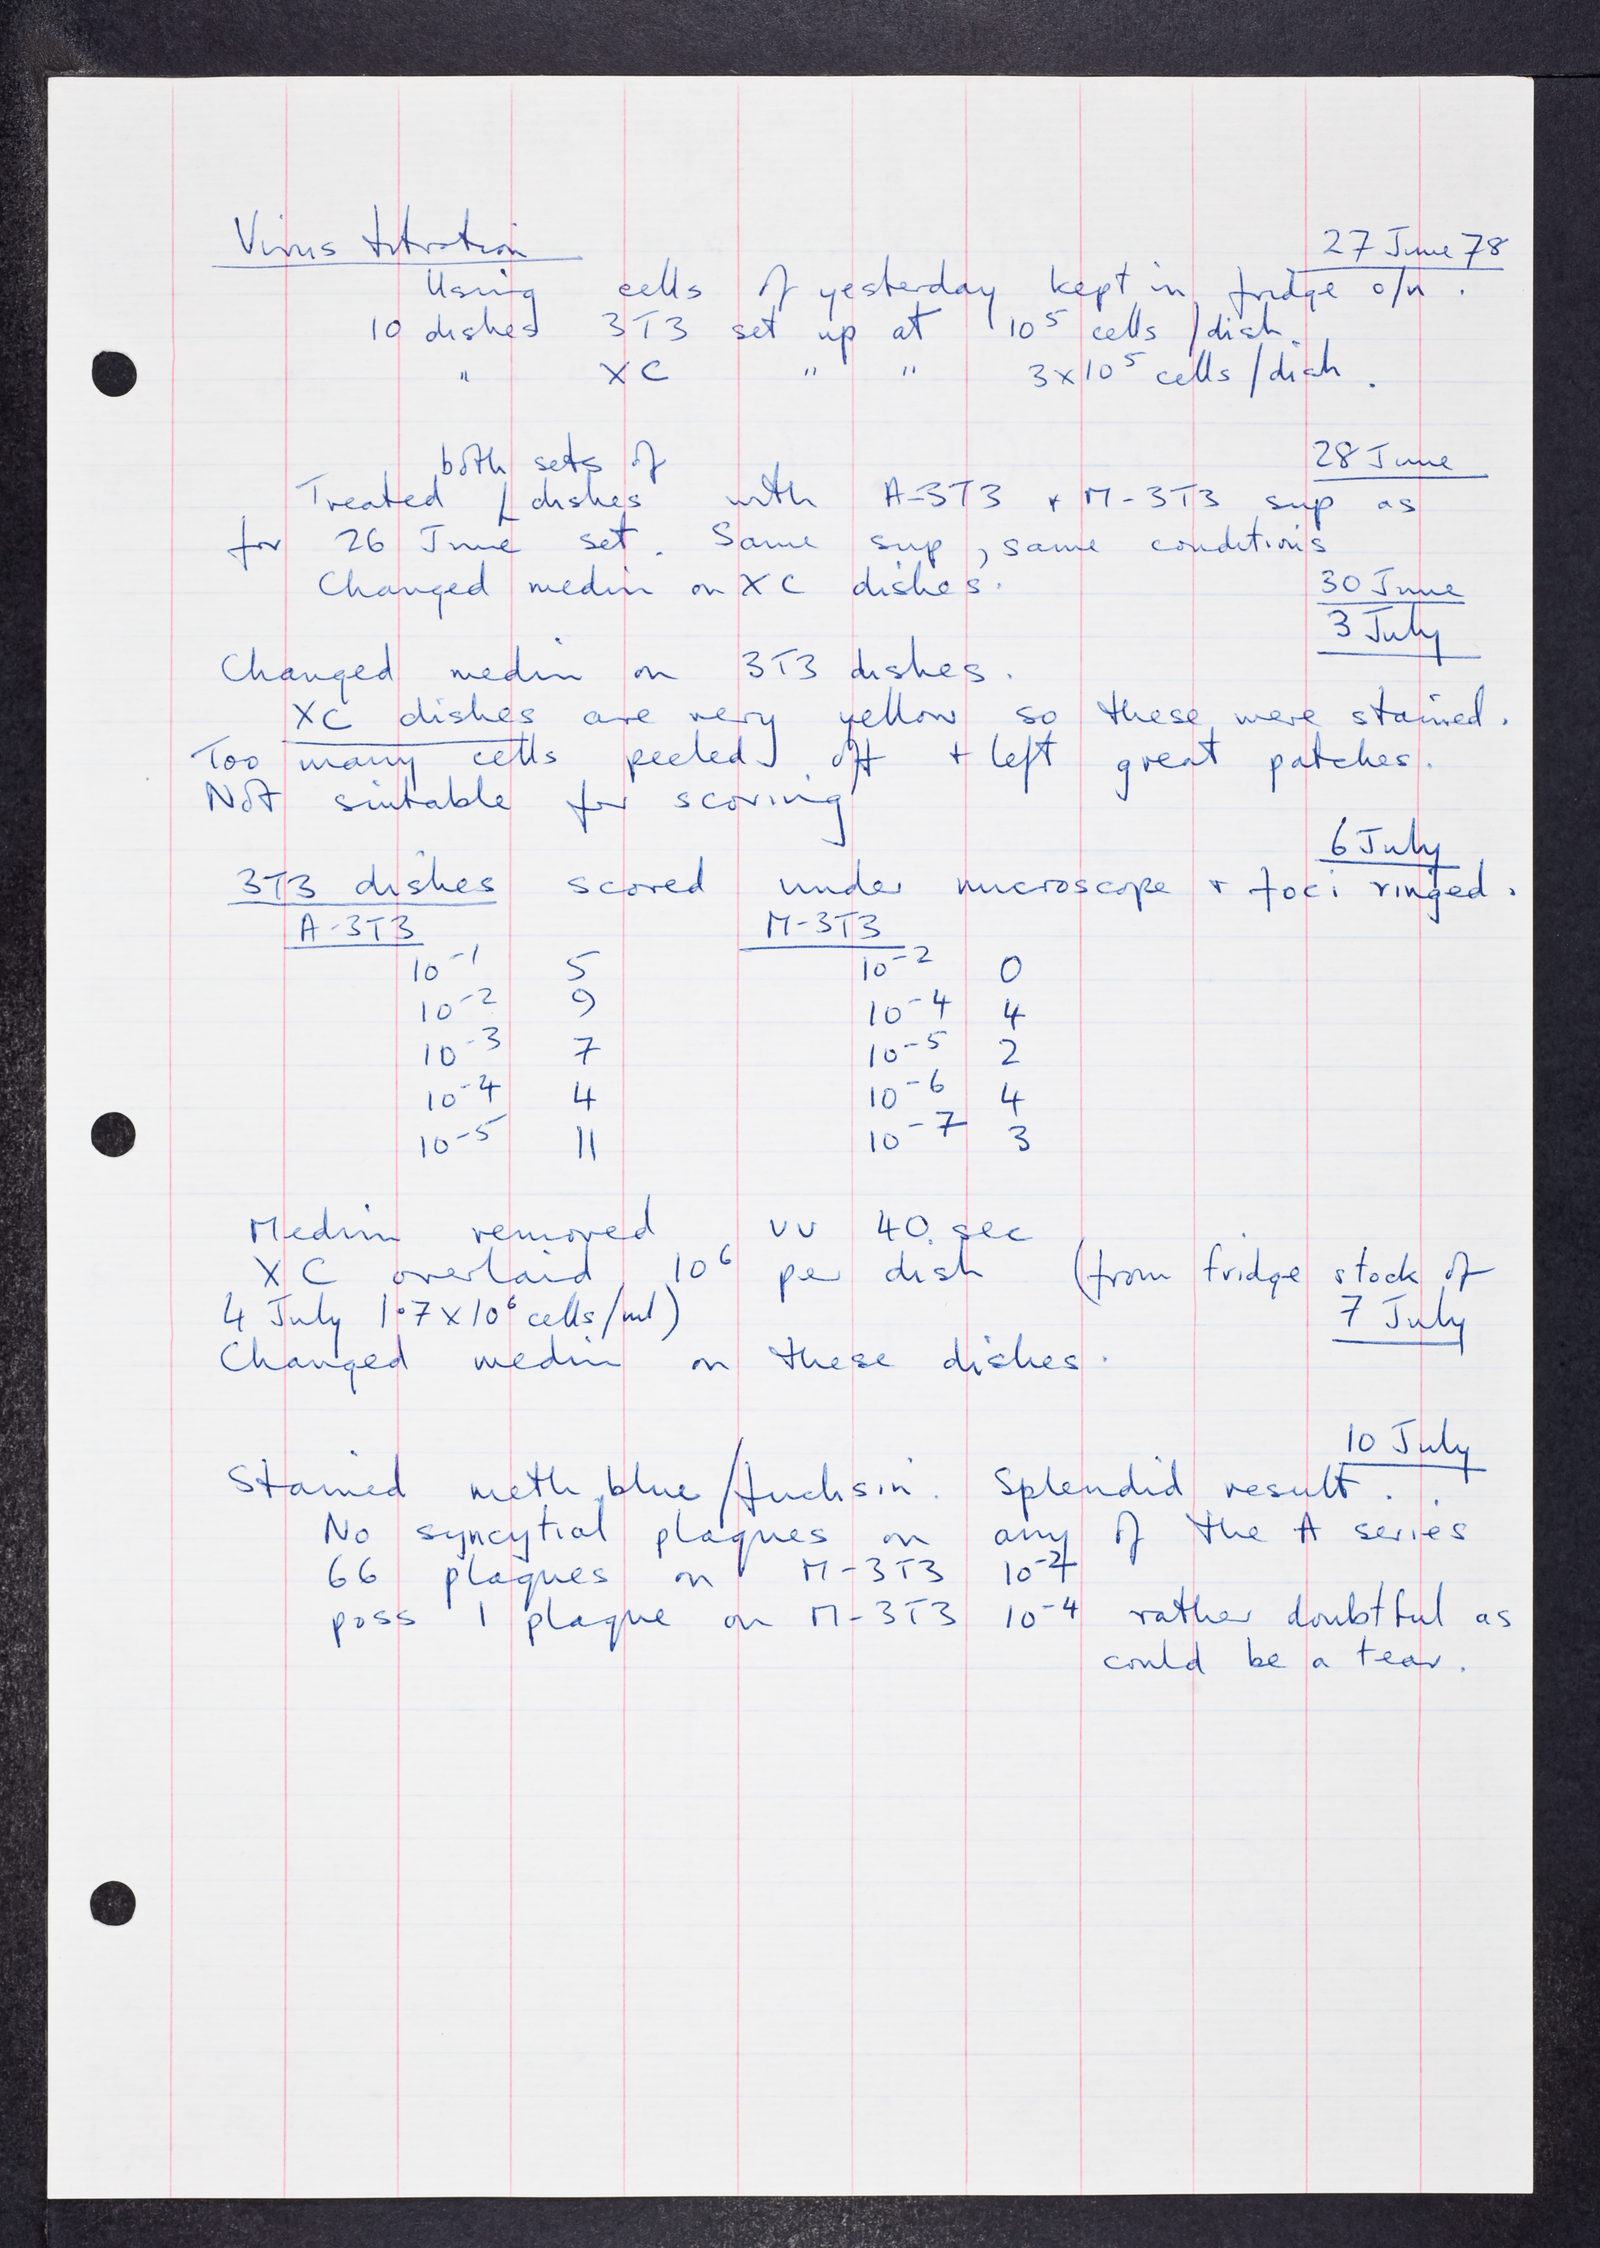 Virus titration
27 June 78
Using cells of yesterday kept in fridge o/n.
10 dishes 3T3 set up at 10⁵ cells/dish.
" XC " " 3x10⁵ cells/dish.
28 June
both sets of
Treated dishes with A-3T3 + M-3T3 sup as
for 26 June set. Same sup, same conditions
30 June
Changed medm on XC dishes.
3 July
Changed medm on 3T3 dishes.
XC dishes are very yellow so these were stained.
Too many cells peeled off + left great patches.
Not suitable for scoring
6 July
3T3 dishes scored under microscope + foci ringed.
A-3T3 M-3T3
10⁻¹ 5 10⁻² 0
10⁻² 9 10⁻⁴ 4
10⁻³ 7 10⁻⁵ 2
10⁻⁴ 4 10⁻⁶ 4
10⁻⁵ 11 10⁻⁷ 3
Medm removed uv 40 sec
XC overlaid 10⁶ per dish (from fridge stock of
4 July 1·7x10⁶ cells/ml)
7 July
Changed medm on these dishes.
10 July
Stained meth blue/fuchsin. Splendid result.
No syncytial plaques on any of the A series
66 plaques on M-3T3
poss 1 plaque on M-3T3 10⁻⁴ rather doubtful as
could be a tear.